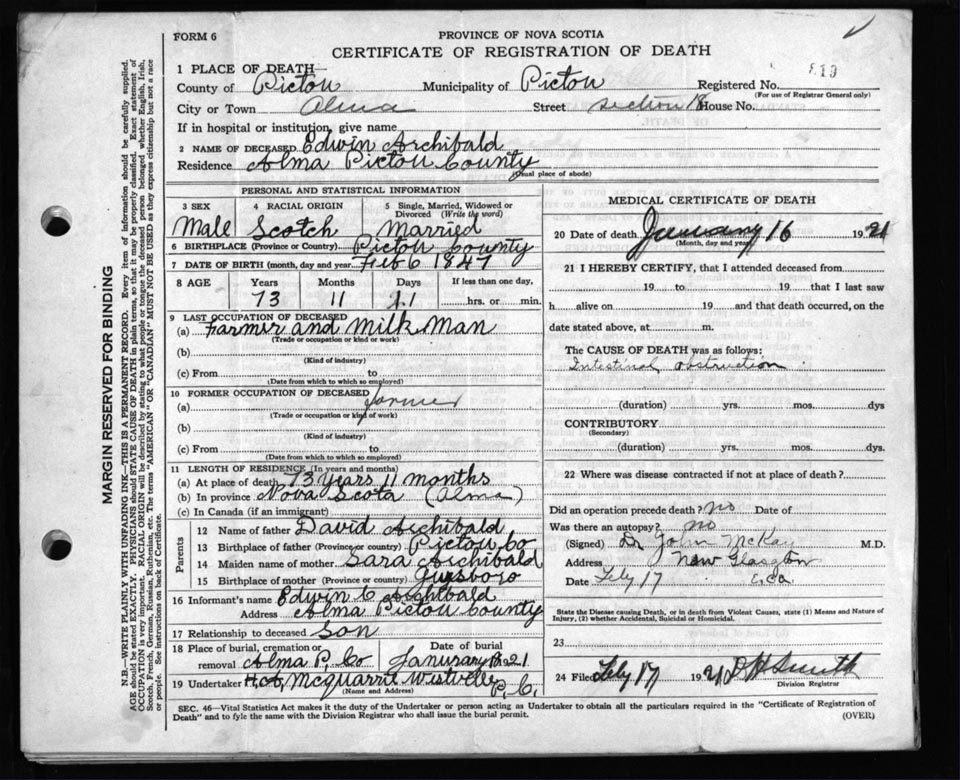 FORM 6
PROVINCE OF NOVA SCOTIA
CERTIFICATE OF REGISTRATION OF DEATH
1 PLACE OF DEATH—
County of Pictou Municipality of Pictou Registered No. 819
(For use of Registrar General only)
City or Town Alma Street section 18 House No.
If in hospital or institution, give name
2 NAME OF DECEASED Edwin Archibald
Residence Alma Pictou County
(Usual place of abode)
PERSONAL AND STATISTICAL INFORMATION
3 SEX 4 RACIAL ORIGIN 5 Single, Married, Widowed or Divorced (Write the word)
Male Scotch Married
6 BIRTHPLACE (Province or Country) Pictou County
7 DATE OF BIRTH (month, day and year Feb 6 1847
8 AGE Years Months Days If less than one day,
73 11 11 hrs. or min.
9 LAST OCCUPATION OF DECEASED
(a) Farmer and Milk Man
(Trade or occupation or kind or work)
(b)
(Kind of industry)
(c) From to
(Date from which to which so employed)
10 FORMER OCCUPATION OF DECEASED
(a) farmer
(Trade or occupation or kind of work)
(b)
(Kind of industry)
(c) From to
(Date from which to which so employed)
11 LENGTH OF RESIDENCE (In years and months)
(a) At place of death 73 years 11 months
(b) In province Nova Scota (Alma)
(c) In Canada (if an immigrant)
Parents
12 Name of father David Archibald
13 Birthplace of father (Province or country) Pictou Co
14 Maiden name of mother Sara Archibald
15 Birthplace of mother (Province or country) Guysboro
16 Informant's name Edwin C Archibald
Address Alma Pictou County
17 Relationship to deceased Son
18 Place of burial, cremation or removal Alma P. Co Date of burial January 18 21
19 Undertaker H.A. McQuarrie Westville P.C.
(Name and Address)
MEDICAL CERTIFICATE OF DEATH
20 Date of death January 16 1921
(Month, day and year)
21 I HEREBY CERTIFY, that I attended deceased from
19 to 19 that I last saw
h alive on 19 and that death occurred, on the
date stated above, at m.
The CAUSE OF DEATH was as follows:
Intestinal obstruction
(duration) yrs. mos. dys
CONTRIBUTORY
(Secondary)
(duration) yrs. mos. dys.
22 Where was disease contracted if not at place of death?
Did an operation precede death? no Date of
Was there an autopsy? no
(Signed) Dr John McKay M.D.
Address New Glasgow
Date Feby 17
State the Disease causing Death, or in death from Violent Causes, state (1) Means and Nature of
Injury, (2) whether Accidental, Suicidal or Homicidal.
23
24 Filed Feby 17 1921 D H Smith
Division Registrar
SEC. 46—Vital Statistics Act makes it the duty of the Undertaker or person acting as Undertaker to obtain all the particulars required in the "Certificate of Registration of
Death" and to fyle the same with the Division Registrar who shall issue the burial permit.
(OVER)
MARGIN RESERVED FOR BINDING
N.B.—WRITE PLAINLY WITH UNFADING INK.—THIS IS A PERMANENT RECORD. Every item of information should be carefully supplied.
AGE should be stated EXACTLY. PHYSICIANS should STATE CAUSE OF DEATH in plain terms, so that it may be properly classified. Exact statement of
OCCUPATION is very important. RACIAL ORIGIN will be described by stating to what people or tongue the deceased person belonged whether English, Irish,
Scotch, French, German, Russian, Ruthenian, etc. The terms "AMERICAN" or "CANADIAN" MUST NOT BE USED as they express citizenship but not a race
or people. See instructions on back of Certificate.